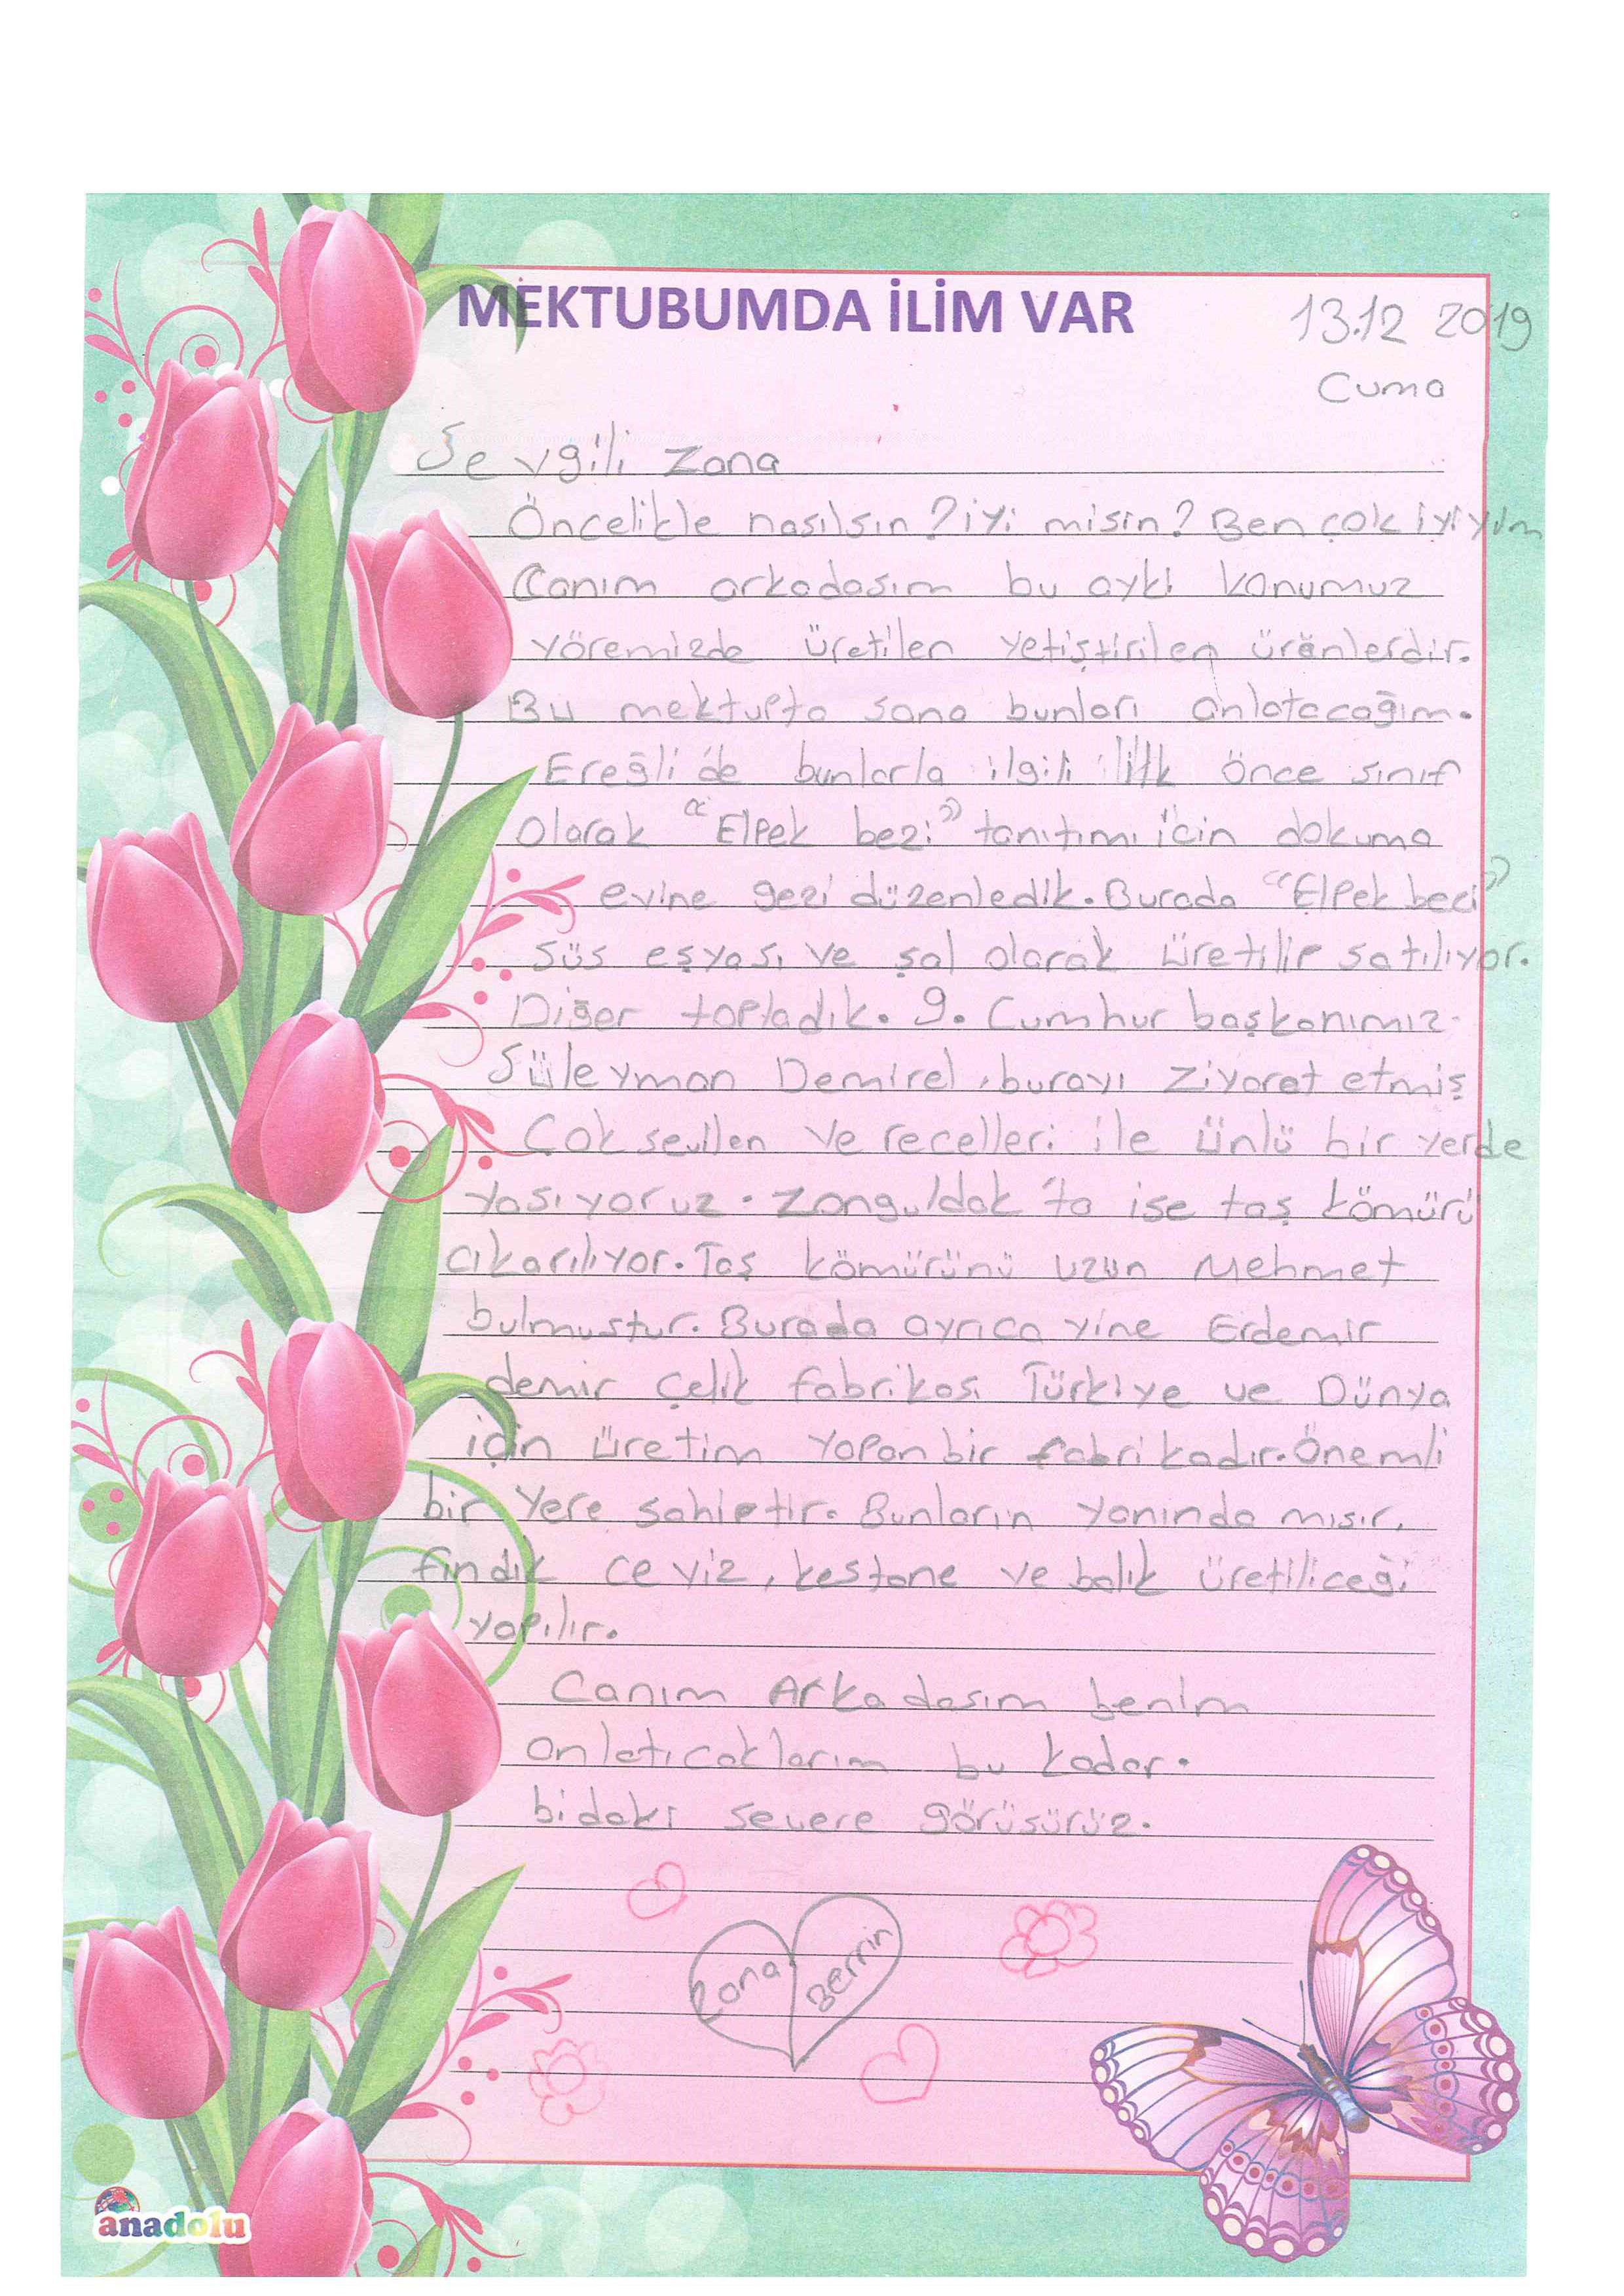 MEKTUBUMDA İLİM VAR
13.12 2019
Cuma
Sevgili Zana
Öncelikle nasılsın? iyi misin? Ben çok iyiyim
Canım arkadasım bu ayki konumuz
yöremizde üretilen yetiştirilen ürünlerdir.
Bu mektupta sana bunları anlatacağım.
Ereğli'de bunlarla ilgili ilk önce sınıf
olarak "Elpek bezi" tanıtımı için dokuma
evine gezi düzenledik. Burada "Elpek bezi"
süs eşyası ve şal olarak üretilip satılıyor.
Diğer topladık. 9. Cumhur başkanımız
Süleyman Demirel, burayı ziyaret etmiş
Çok sevilen ve recelleri ile ünlü bir yerde
yasıyoruz. Zonguldak'ta ise taş kömürü
cıkarılıyor. Taş kömürünü uzun Mehmet
bulmustur. Burada ayrıca yine Erdemir
demir çelik fabrikası Türkiye ve Dünya
için üretim yapan bir fabrikadır. Önemli
bir yere sahiptir. Bunların yanında mısır,
fındık ceviz, kestane ve balık üretiliceği
yapılır.
Canım Arkadasım benim
anlatıcaklarım bu kadar.
bidaki severe görüsürüz.
Zana Berrin
anadolu